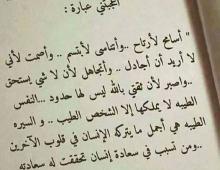 اعجبتني عبارة :
" أسامح لأرتاح ..وأتناسى لأبتسم ..وأصمت لأني
لا أريد أن أجادل .. وأتجاهل لأن لا شي يستحق
..واصبر لأن ثقتي بالله ليس لها حدود ...النفس
الطيبه لا يملكها إلا الشخص الطيب .. و السيره
الطيبه هي أجمل ما يتركه الإنسان في قلوب الآخرين
..ومن تسبب في سعادة إنسان تحققت له سعادته